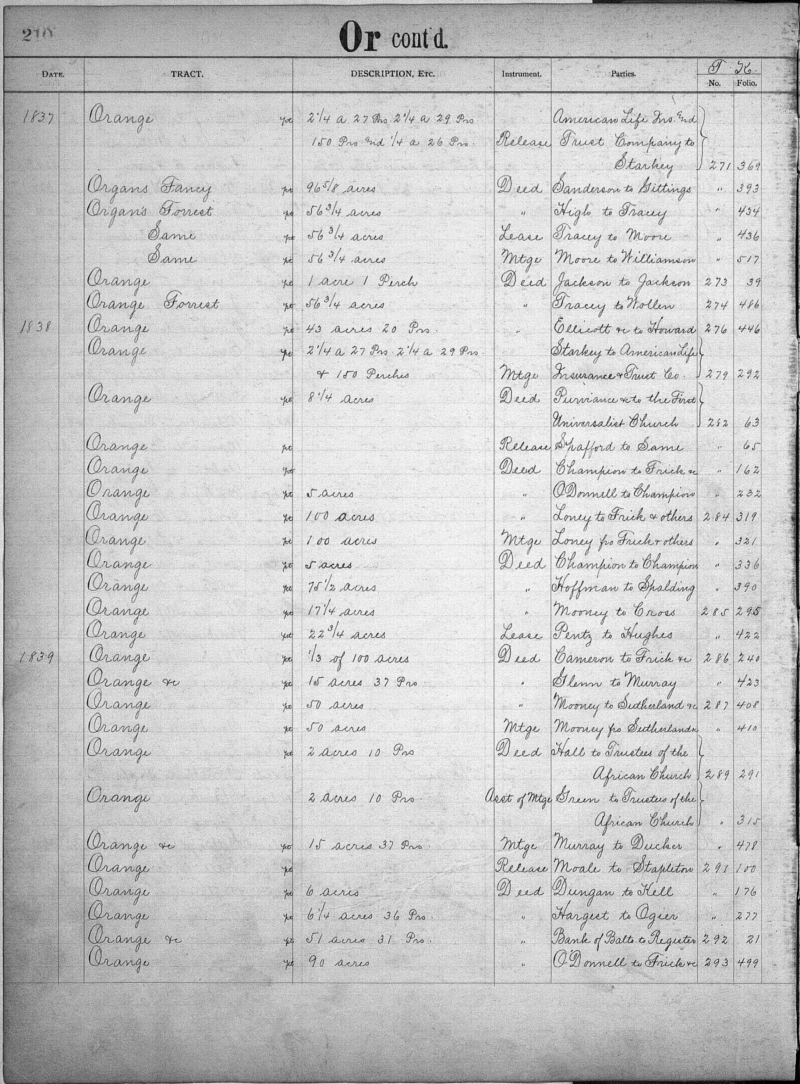 210
Or cont'd.
T K.
DATE. TRACT. DESCRIPTION, ETC. Instrument. Parties. No. Folio.
1837 Orange po 2 1/4 a 27 Prs 2 1/4 a 29 Prs American Life Ins. and
150 Prs and 1/4 a 26 Prs. Release Trust Company to
Starkey 271 369
Organs Fancy po 96 5/8 acres Deed Sanderson to Gittings " 393
Organs Forrest po 56 3/4 acres " High to Tracey " 434
Same po 56 3/4 acres Lease Tracey to Moore " 436
Same po 56 3/4 acres Mtge Moore to Williamson " 517
Orange po 1 acre 1 Perch Deed Jackson to Jackson 273 39
Orange Forrest po 56 3/4 acres " Tracey to Wollen 274 486
1838 Orange po 43 acres 20 Prs. " Ellicott &c to Howard 276 446
Orange po 2 1/4 a 27 Prs. 2 1/4 a 29 Prs. Starkey to American Life
& 150 Perches Mtge Insurance & Trust Co. 279 292
Orange po 8 1/4 acres Deed Purviance &c to the First
Universalist Church 282 63
Orange po Release Spafford to Same " 65
Orange po Deed Champion to Frick &c " 162
Orange po 5 acres " O'Donnell to Champion " 232
Orange po 100 acres " Loney to Frick & others 284 319
Orange po 100 acres Mtge Loney fro Frick & others " 321
Orange po 5 acres Deed Champion to Champion " 336
Orange po 75 1/2 acres " Hoffman to Spalding " 390
Orange po 17 1/4 acres " Mooney to Cross 285 295
Orange po 22 3/4 acres Lease Pentz to Hughes " 422
1839 Orange po 1/3 of 100 acres Deed Cameron to Frick &c 286 240
Orange &c po 15 acres 37 Prs " Glenn to Murray " 423
Orange po 50 acres " Mooney to Sutherland &c 287 408
Orange po 50 acres Mtge Mooney fro Sutherland &c " 410
Orange po 2 acres 10 Prs Deed Hall to Trustees of the
African Church 289 291
Orange 2 acres 10 Prs. Asst of Mtge Green to Trustees of the
African Church " 315
Orange &c po 15 acres 37 Prs. Mtge Murray to Ducker " 478
Orange po Release Moale to Stapleton 291 100
Orange po 6 acres Deed Dungan to Kell " 176
Orange po 6 1/4 acres 36 Prs. " Hargest to Ogier " 277
Orange &c po 51 acres 31 Prs. " Bank of Balto to Register 292 21
Orange po 90 acres " O'Donnell to Frick &c 293 499